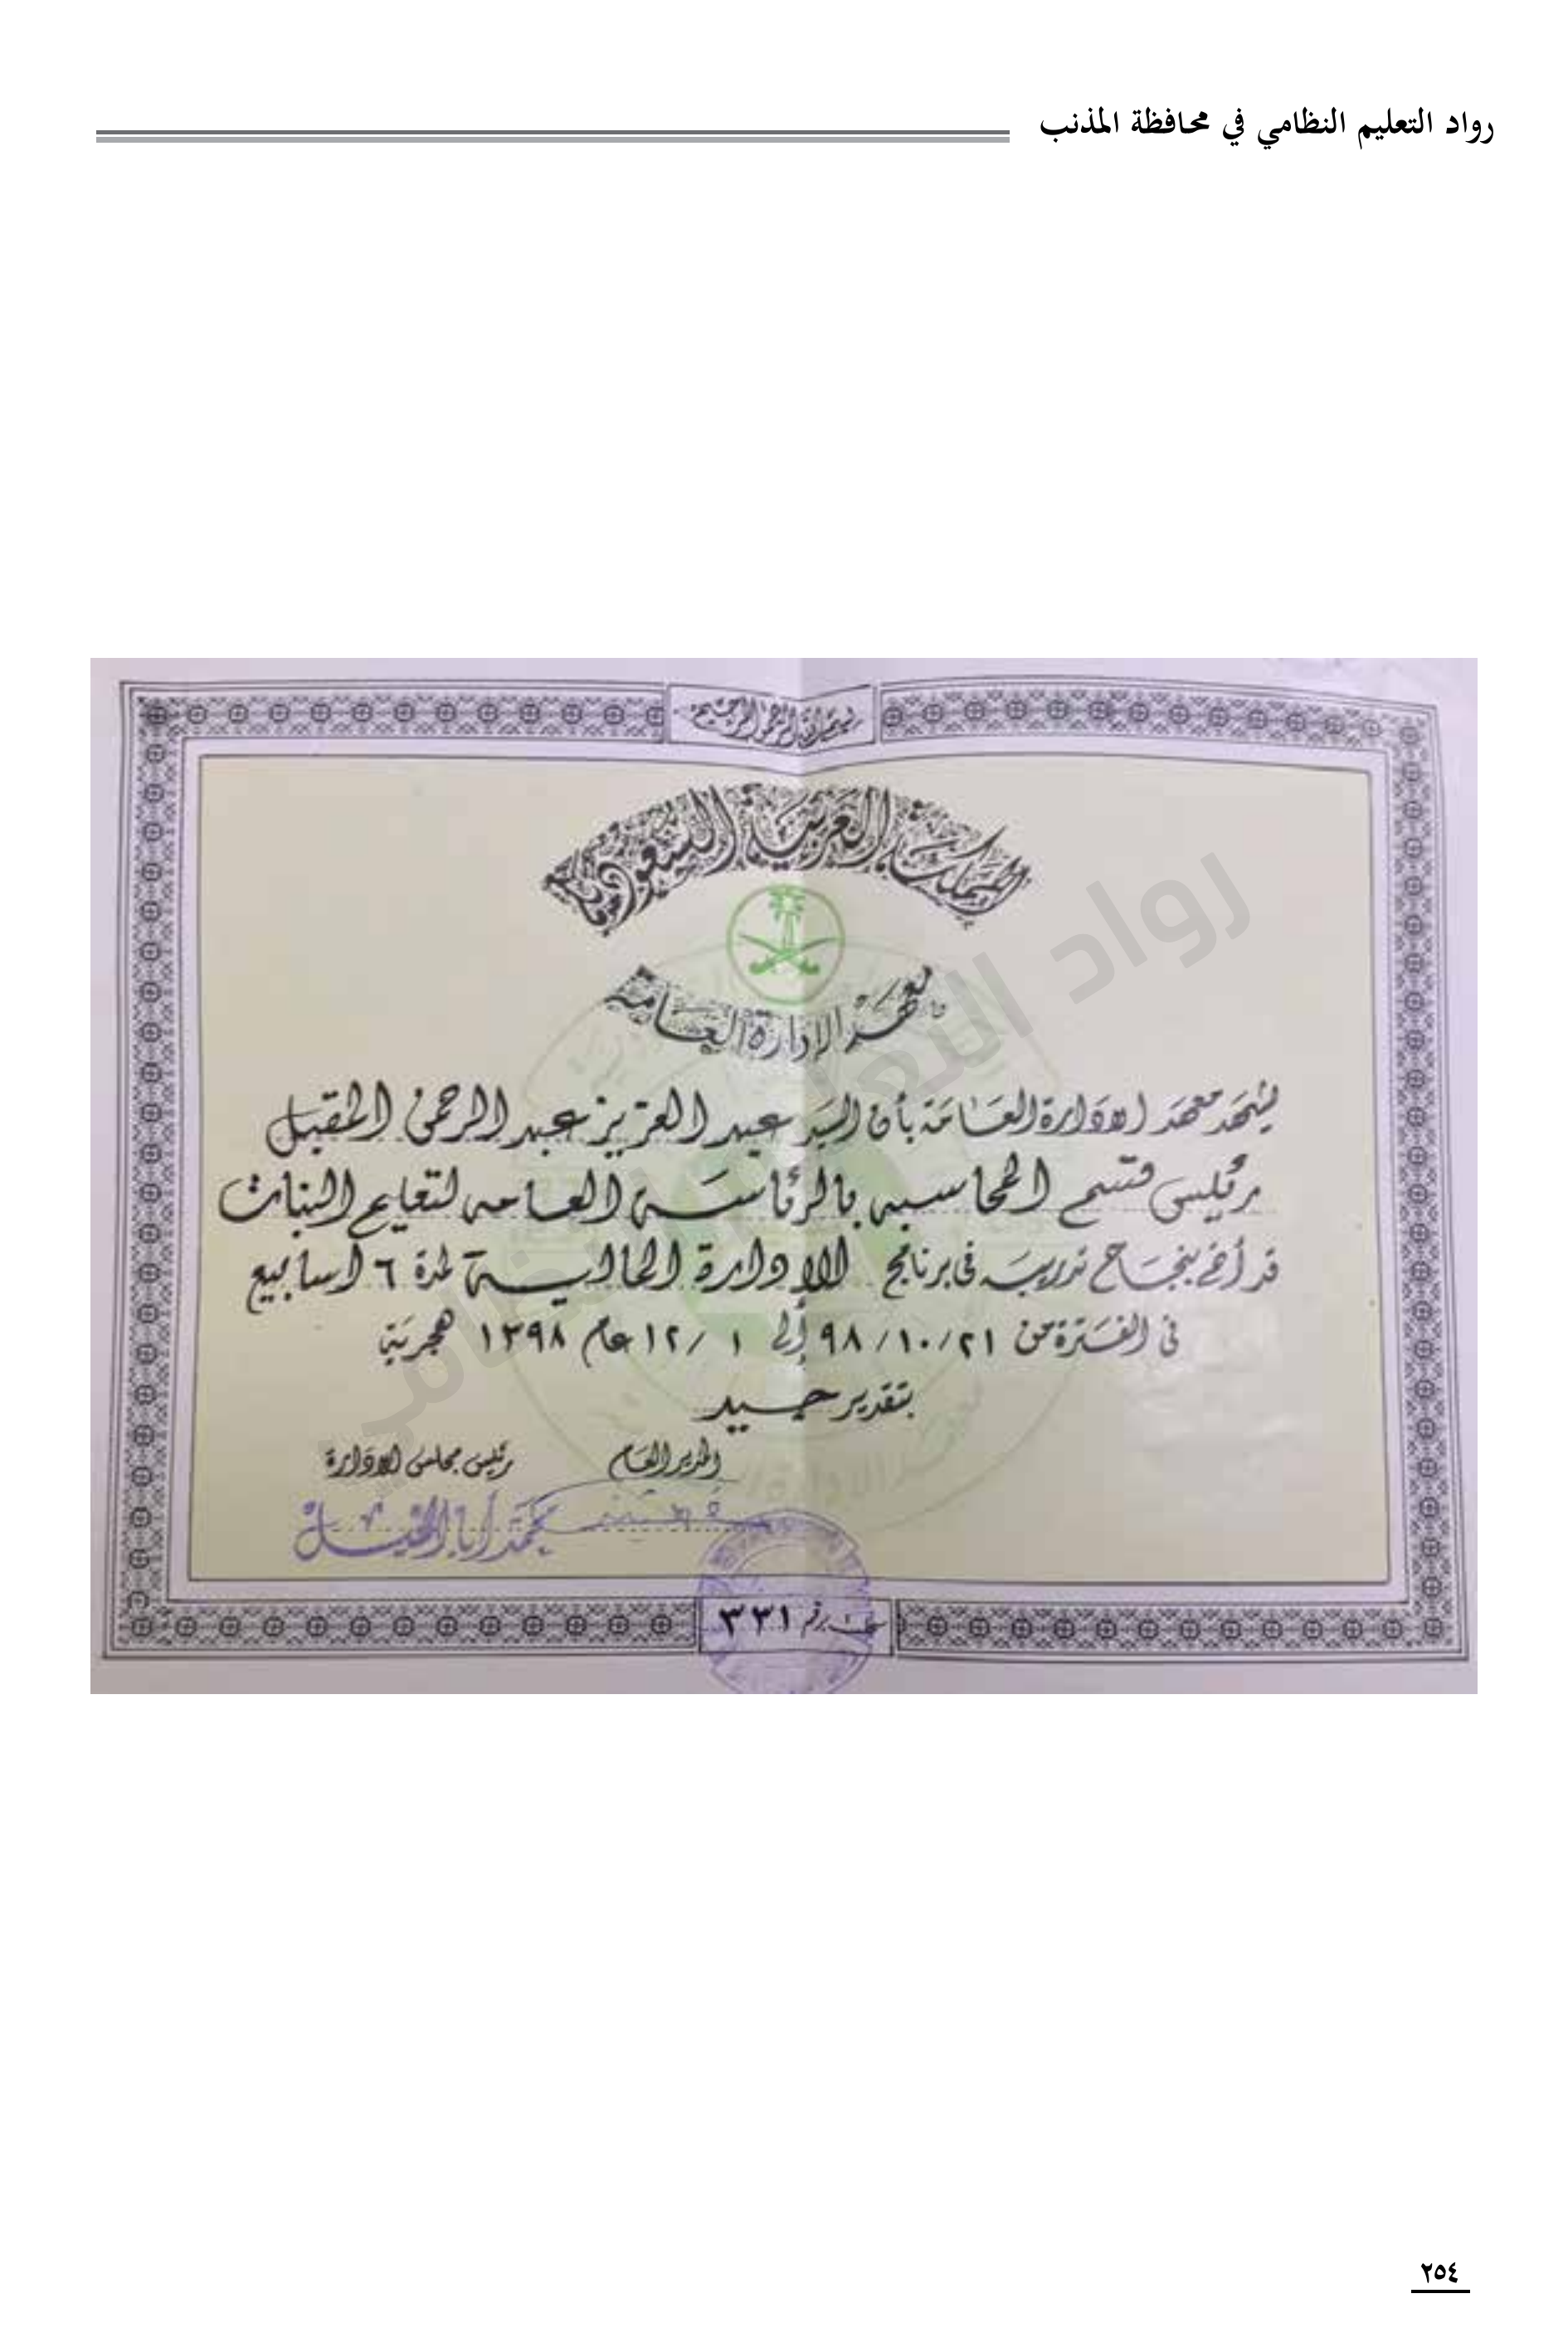 رواد التعليم النظامي في محافظة المذنب
بسم الله الرحمن الرحيم
المملكة العربية السعودية
معهد الإدارة العامة
يشهد معهد الادارة العامة بأن السيد عبد العزيز عبد الرحمن المقبل
رئيس قسم المحاسبه بالرئاسة العامه لتعليم البنات
قد أتم بنجاح تدريبه في برنامج الإدارة المالية لمدة ٦ اسابيع
في الفترة من ٩٨/١٠/٢١ إلى ١٢/١ عام ١٣٩٨ هجرية
بتقدير جيد
المدير العام
رئيس مجلس الادارة
محمد أبا الخيل
رقم ٣٣١
رواد التعليم النظامي
٢٥٤